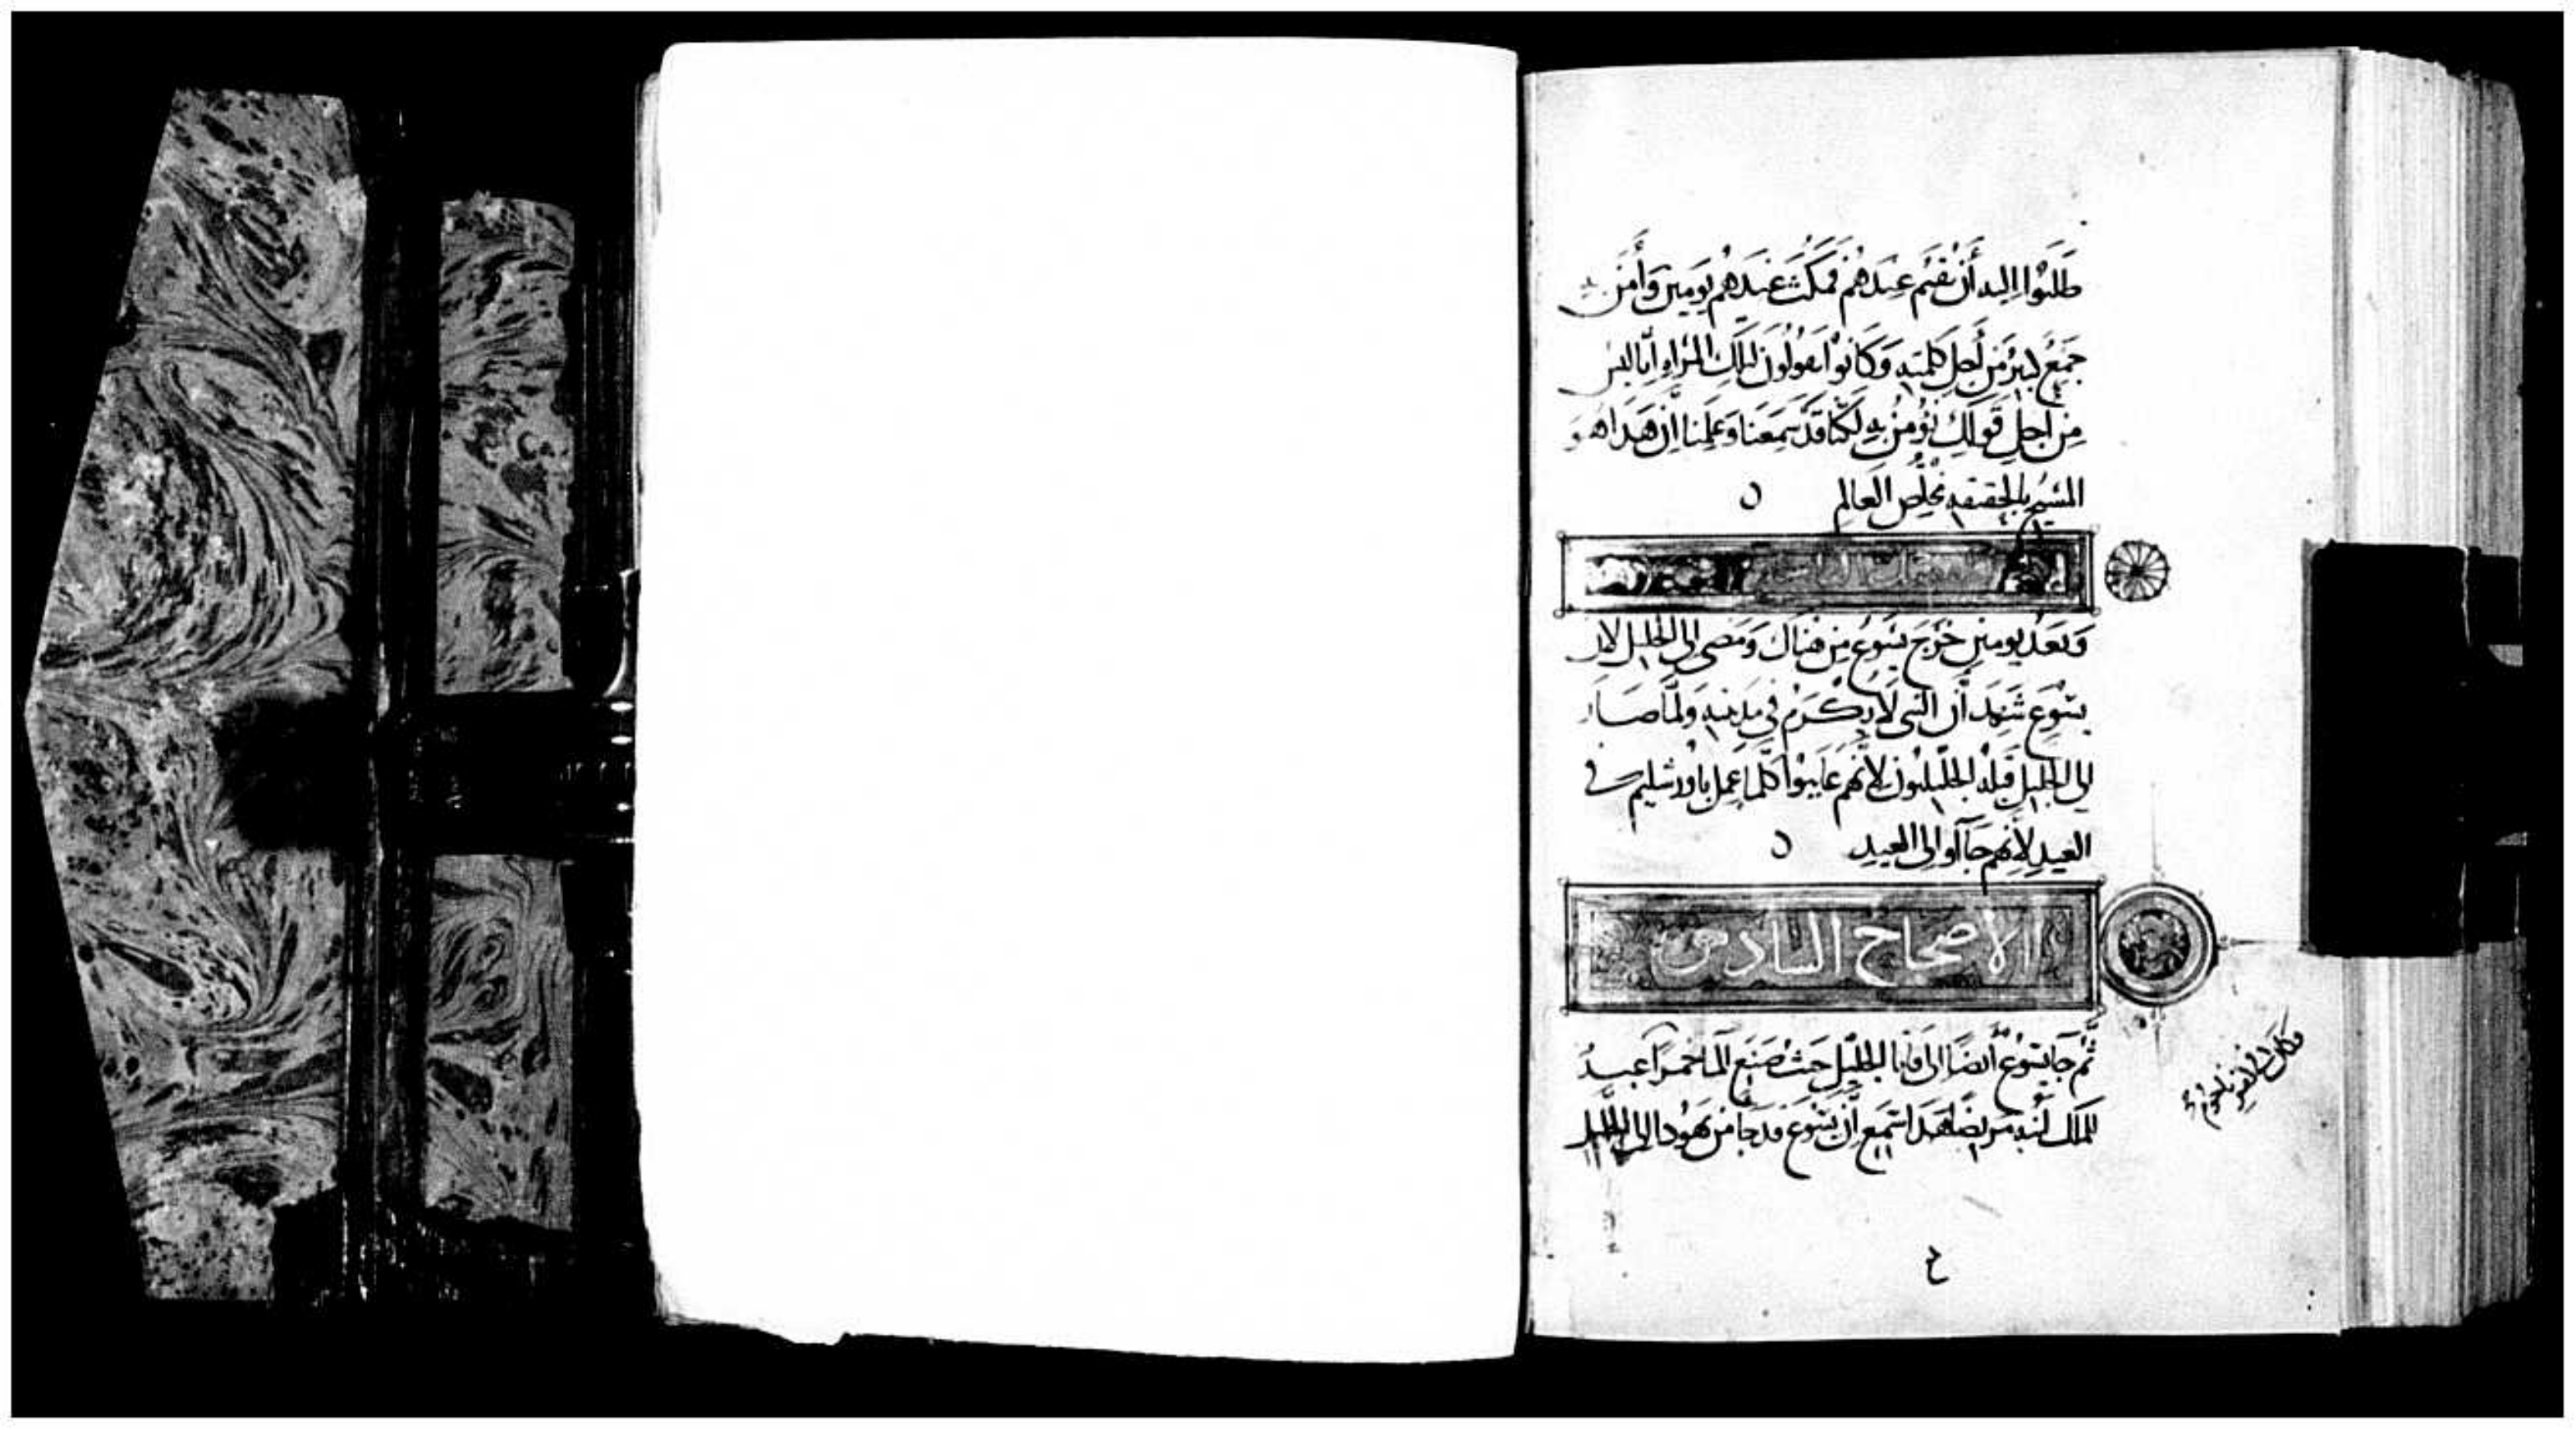 طَلَبُوا إليه أَنْ يُقيَم عِندَهُمْ فَمَكَثَ عِندَهُمْ يَومَينِ وَأَمَنَ بِهِ
جَمْعٌ كَبيْرٌ مِن أَجلِ كلِمَتِهِ وَكَانُوا يقولُونَ لِتِلكَ المَرْأهِ إنّا ليسَ
مِن أجلِ قَولِكِ نُؤمِنُ بِهِ لَكِنّا قَدْ سَمِعَنَا وَعَلِمنَا أنّ هَذا هوَ
المسِيحُ بالحقيقهِ مُخلِّص العَالم ٥
وَبَعْدَ يومينِ خَرَجَ يَسُوعُ مِن هناكَ وَمَضى إلى الجليل لأن
يسُوع شَهِدَ أن النبي لا يُكْرَمُ في مدينتِهِ وَلمَّا صَارَ
إلي الجليلِ قَبِلَهُ الجليليُون لأنهُم عَاينوا كلّما عَمِلَ باورشليم في
العيدِ لأنهم جَآآوا إلى العيدِ ٥
الاصحاح السادس
ثُمّ جَا يَسُوعُ أيضًا إلى قانا الجليلِ حيثُ صَنَعَ المآ خمراً عبدُ
للملك ابنه مريضٌ هَذا سَمِع أنّ يَسُوعَ قد جَا من يهُودا إلى الجليل
وكان في كفرناحوم
ح